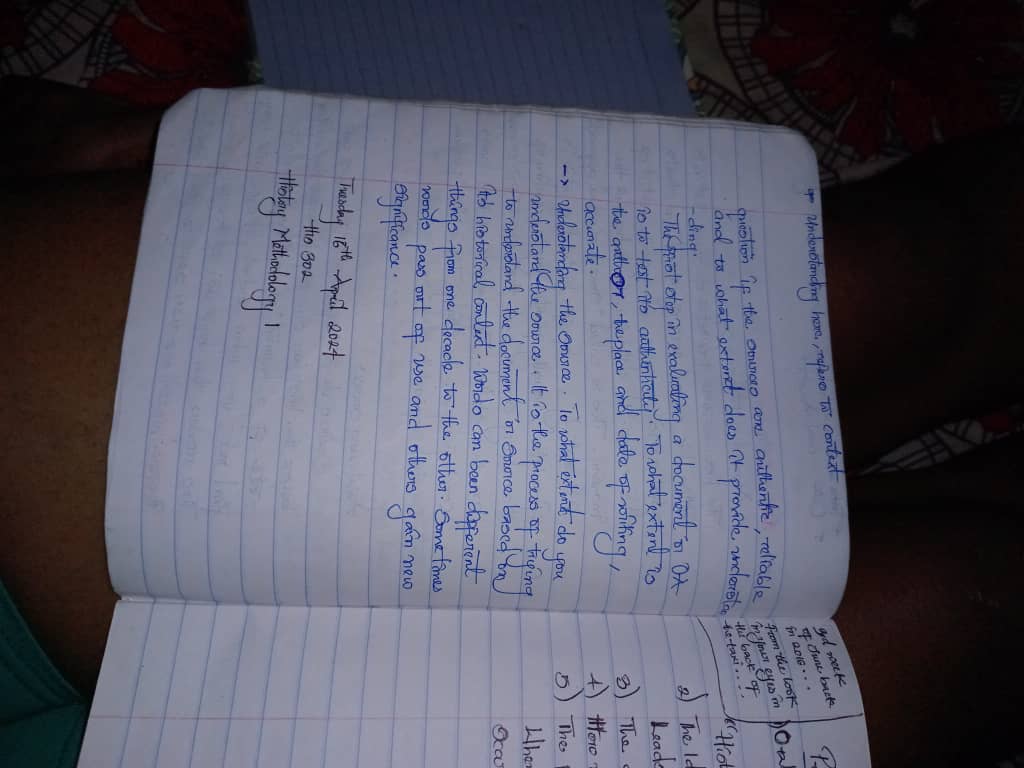 Understanding here, refers to context
question if the sources are authentic, reliable
and to what extent does it provide understan
-ding.
The first step in evaluating a document or OA
is to test its authenticity. To what extent is
the author, the place and date of writing,
accurate.
-> Understanding the source. To what extent do you
understand the source. It is the process of trying
to understand the document or source based on
its historical context. Words can been different
things from one decade to the other. Some times
words pass out of use and others gain new
significance.
Tuesday 16th April 2024
His 302
History Methodology 1
3rd week
of June back
in 2016...
From the look
in your eyes in
the back of
the taxi.....
"Hist
2) The Id
Leade
3) The
4) How
5) The
When